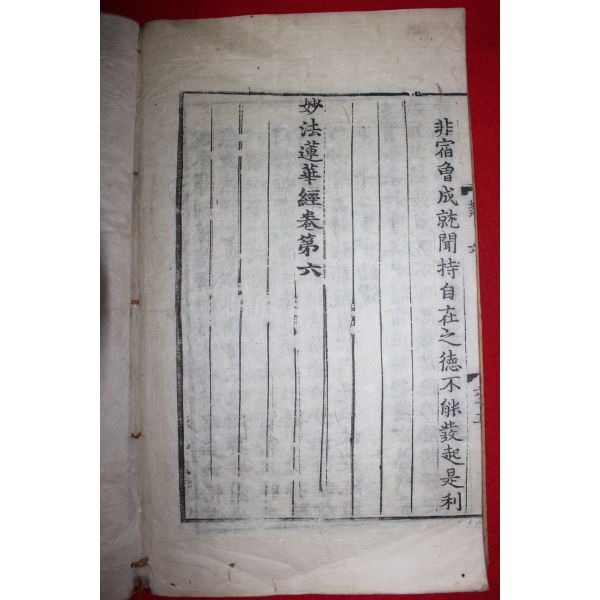 非宿曾成就聞持自在之徳不能發起是利
妙法蓮華經卷第六